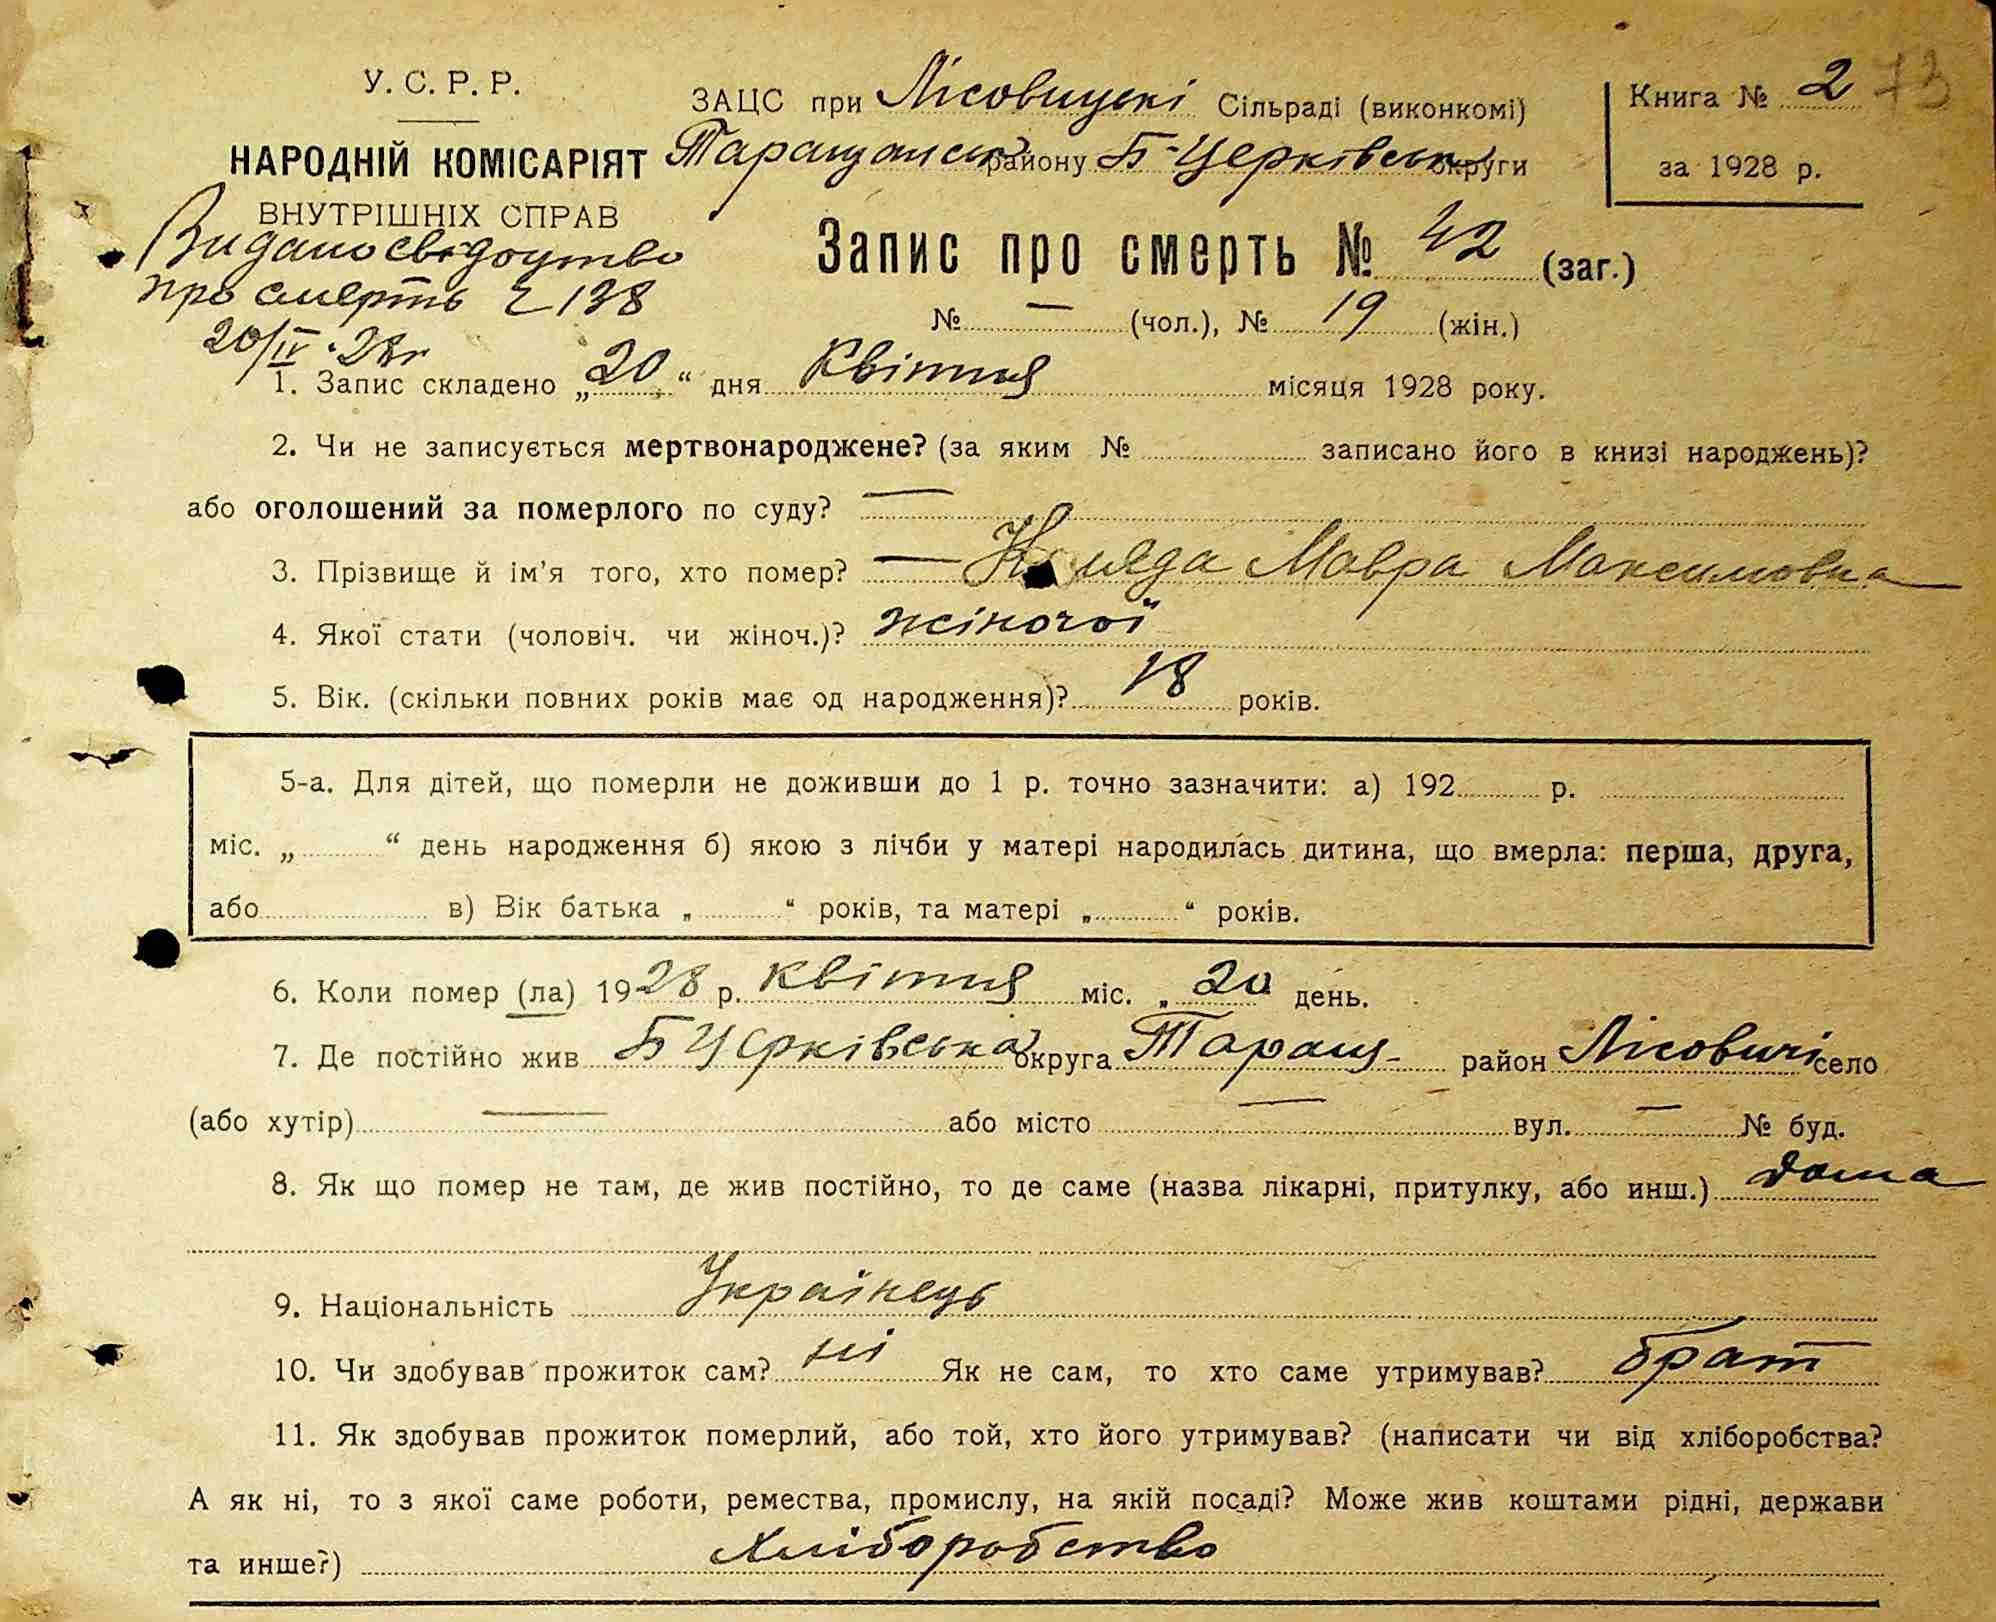 У. С. Р. Р.
НАРОДНІЙ КОМІСАРІЯТ
ВНУТРІШНІХ СПРАВ
Видано свідоцтво
про смерть № 138
20/IV-28 г
ЗАЦС при Лісовицькі Сільраді (виконкомі)
Таращанськ району Б-Церківськ округи
Книга № 2 73
за 1928 р.
Запис про смерть № 42 (заг.)
№ — (чол.), № 19 (жін.)
1. Запис складено „20“ дня Квітня місяця 1928 року.
2. Чи не записується мертвонароджене? (за яким № записано його в книзі народжень)?
або оголошений за померлого по суду? —
3. Прізвище й ім'я того, хто помер? — Коляда Мавра Максимовна
4. Якої стати (чоловіч. чи жіноч.)? жіночої
5. Вік. (скільки повних років має од народження)? 18 років.
5-а. Для дітей, що померли не доживши до 1 р. точно зазначити: а) 192 р.
міс. „ “ день народження б) якою з лічби у матері народилась дитина, що вмерла: перша, друга,
або в) Вік батька „ “ років, та матері „ “ років.
6. Коли помер (ла) 1928 р. квітня міс. „20 день.
7. Де постійно жив Б Церківська округа Таращ- район Лісовичі село
(або хутір) — або місто — вул. — № буд.
8. Як що помер не там, де жив постійно, то де саме (назва лікарні, притулку, або инш.) дома
9. Національність Українець
10. Чи здобував прожиток сам? ні Як не сам, то хто саме утримував? брат
11. Як здобував прожиток померлий, або той, хто його утримував? (написати чи від хліборобства?
А як ні, то з якої саме роботи, ремества, промислу, на якій посаді? Може жив коштами рідні, держави
та инше?) Хліборобство